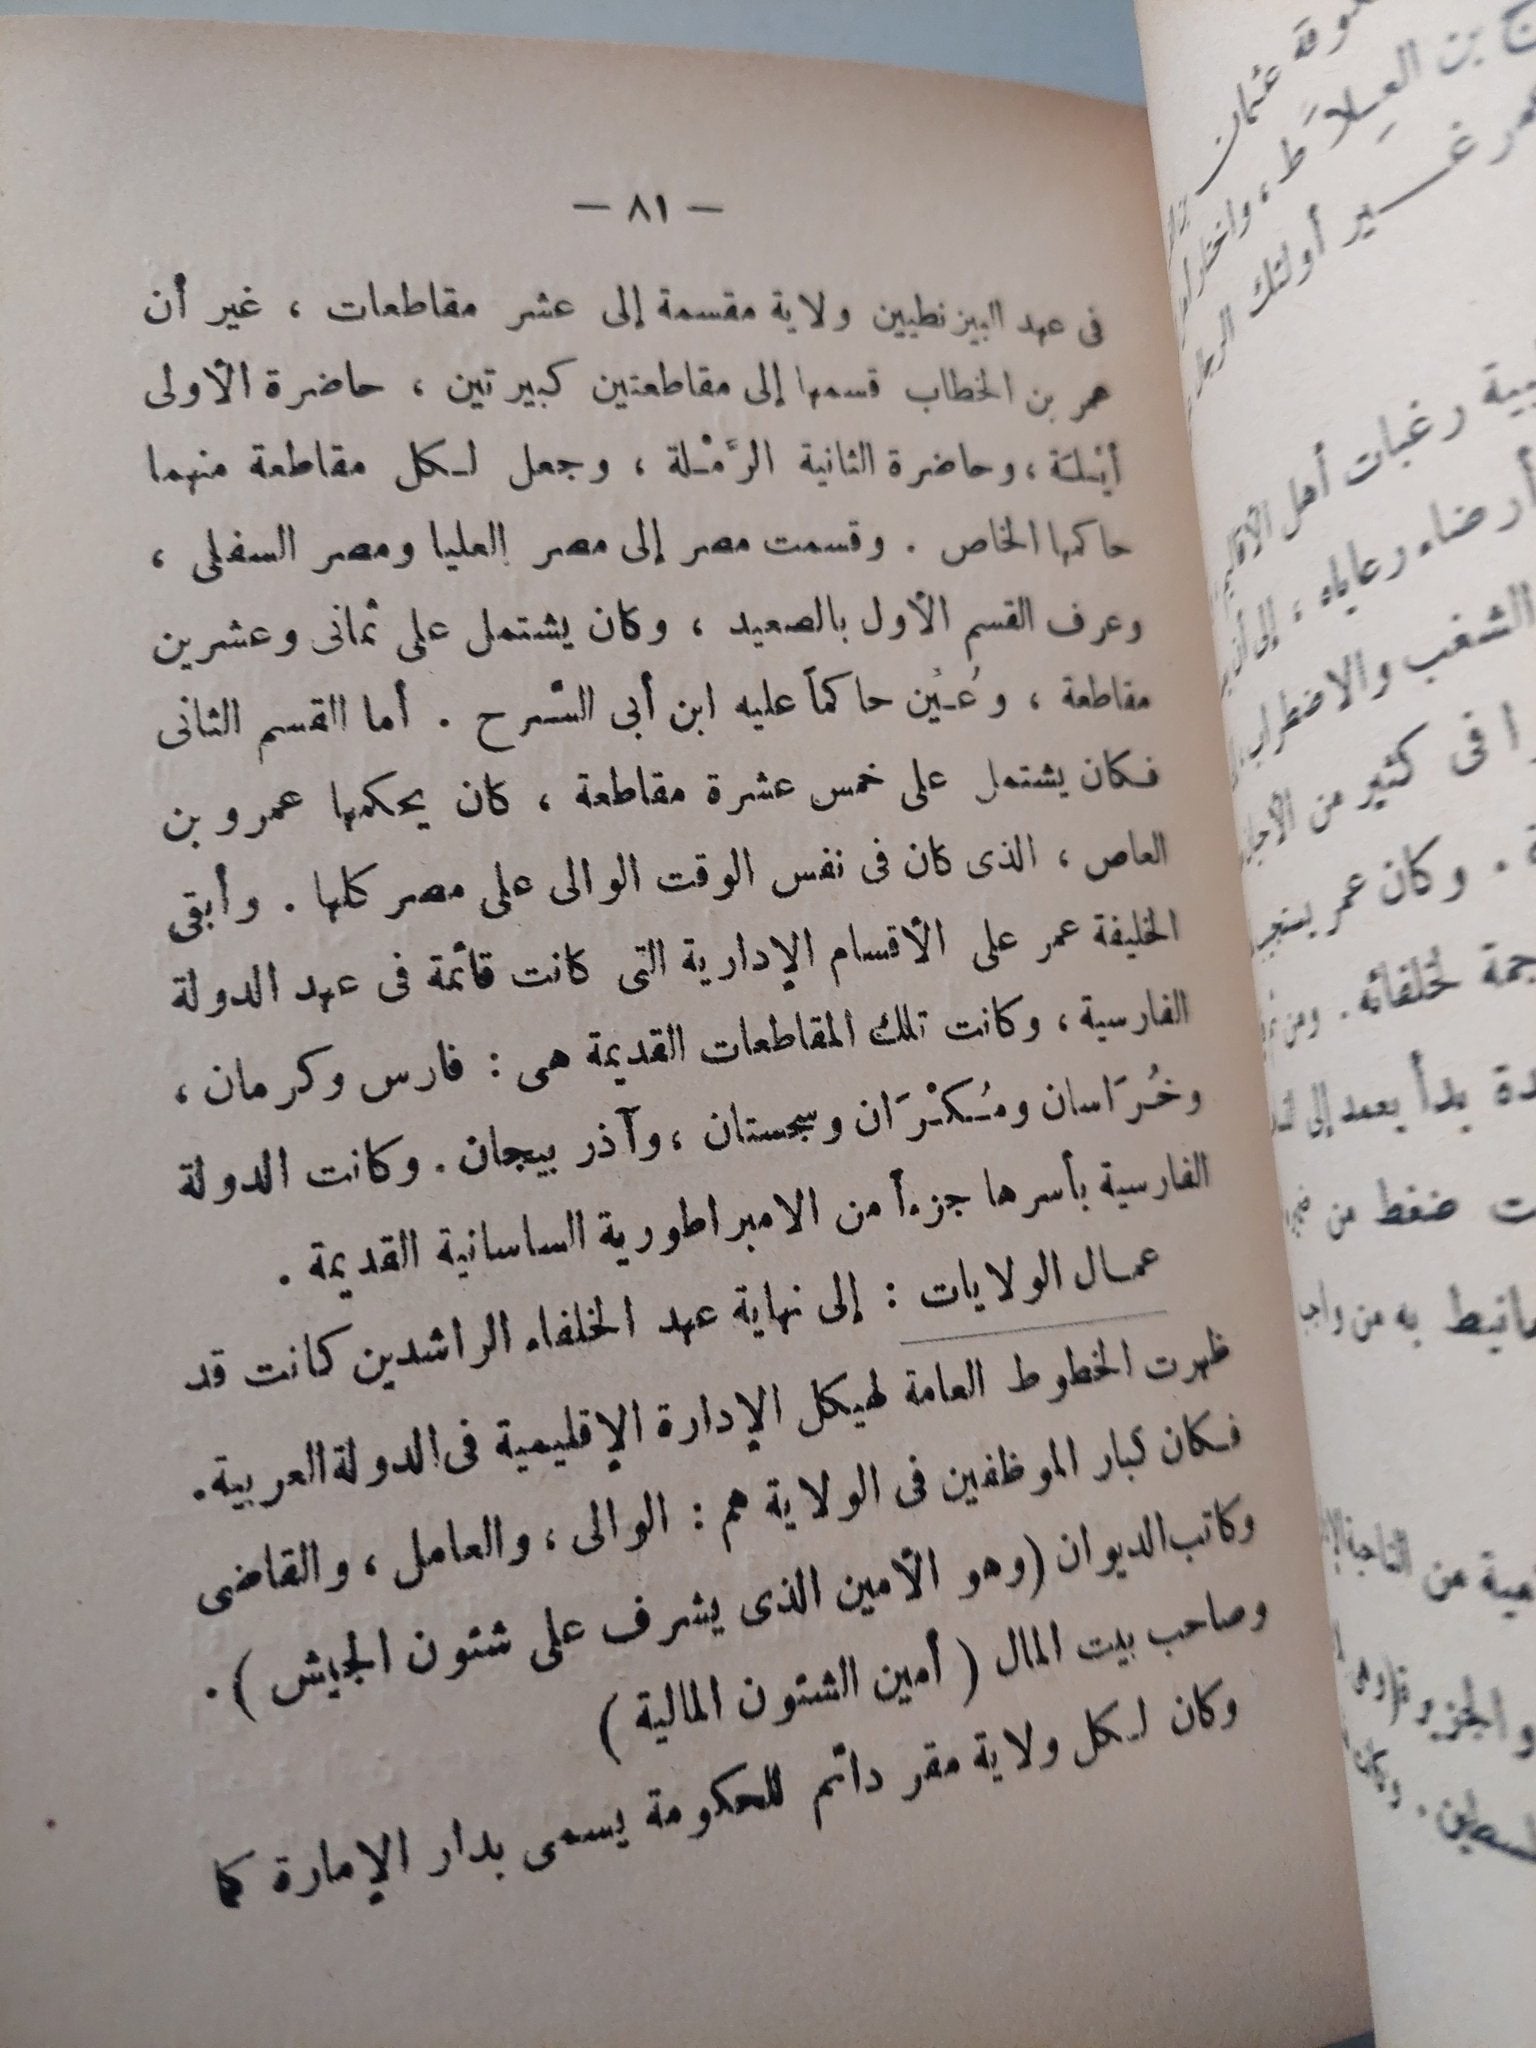 — ٨١ —
فى عهد البيزنطيين ولاية مقسمة إلى عشر مقاطعات ، غير أن
عمر بن الخطاب قسمها إلى مقاطعتين كبيرتين ، حاضرة الأولى
أيْلة ، وحاضرة الثانية الرَّمْلة ، وجعل لكل مقاطعة منهما
حاكمها الخاص . وقسمت مصر إلى مصر العليا ومصر السفلى ،
وعرف القسم الأول بالصعيد ، وكان يشتمل على ثمانى وعشرين
مقاطعة ، وعُيِّن حاكماً عليه ابن أبى السَّرح . أما القسم الثانى
فكان يشتمل على خمس عشرة مقاطعة ، كان يحكمها عمرو بن
العاص ، الذى كان فى نفس الوقت الوالى على مصر كلها . وأبقى
الخليفة عمر على الأقسام الإدارية التى كانت قائمة فى عهد الدولة
الفارسية ، وكانت تلك المقاطعات القديمة هى : فارس وكرمان ،
وخُرَاسان ومُكْرَان وسجستان ، وآذر بيجان . وكانت الدولة
الفارسية بأسرها جزءاً من الامبراطورية الساسانية القديمة .
عمال الولايات : إلى نهاية عهد الخلفاء الراشدين كانت قد
ظهرت الخطوط العامة لهيكل الإدارة الإقليمية فى الدولة العربية .
فكان كبار الموظفين فى الولاية هم : الوالى ، والعامل ، والقاضى
وكاتب الديوان ( وهو الأمين الذى يشرف على شئون الجيش ) .
وصاحب بيت المال ( أمين الشئون المالية )
وكان لكل ولاية مقر دائم للحكومة يسمى بدار الإمارة كما
عثمان
ج بن العِلاَط ، واختار
غير أولئك
رغبات أهل الأقاليم
أرضاء رعاياه ، إلى أن
الشغب والاضطراب
فى كثير من
. وكان عمر
لخلفائه . ومن
بدأ يعمد إلى
ضغط من
به من واجب
من الناحية
والجزيرة ( وهى
. وكان